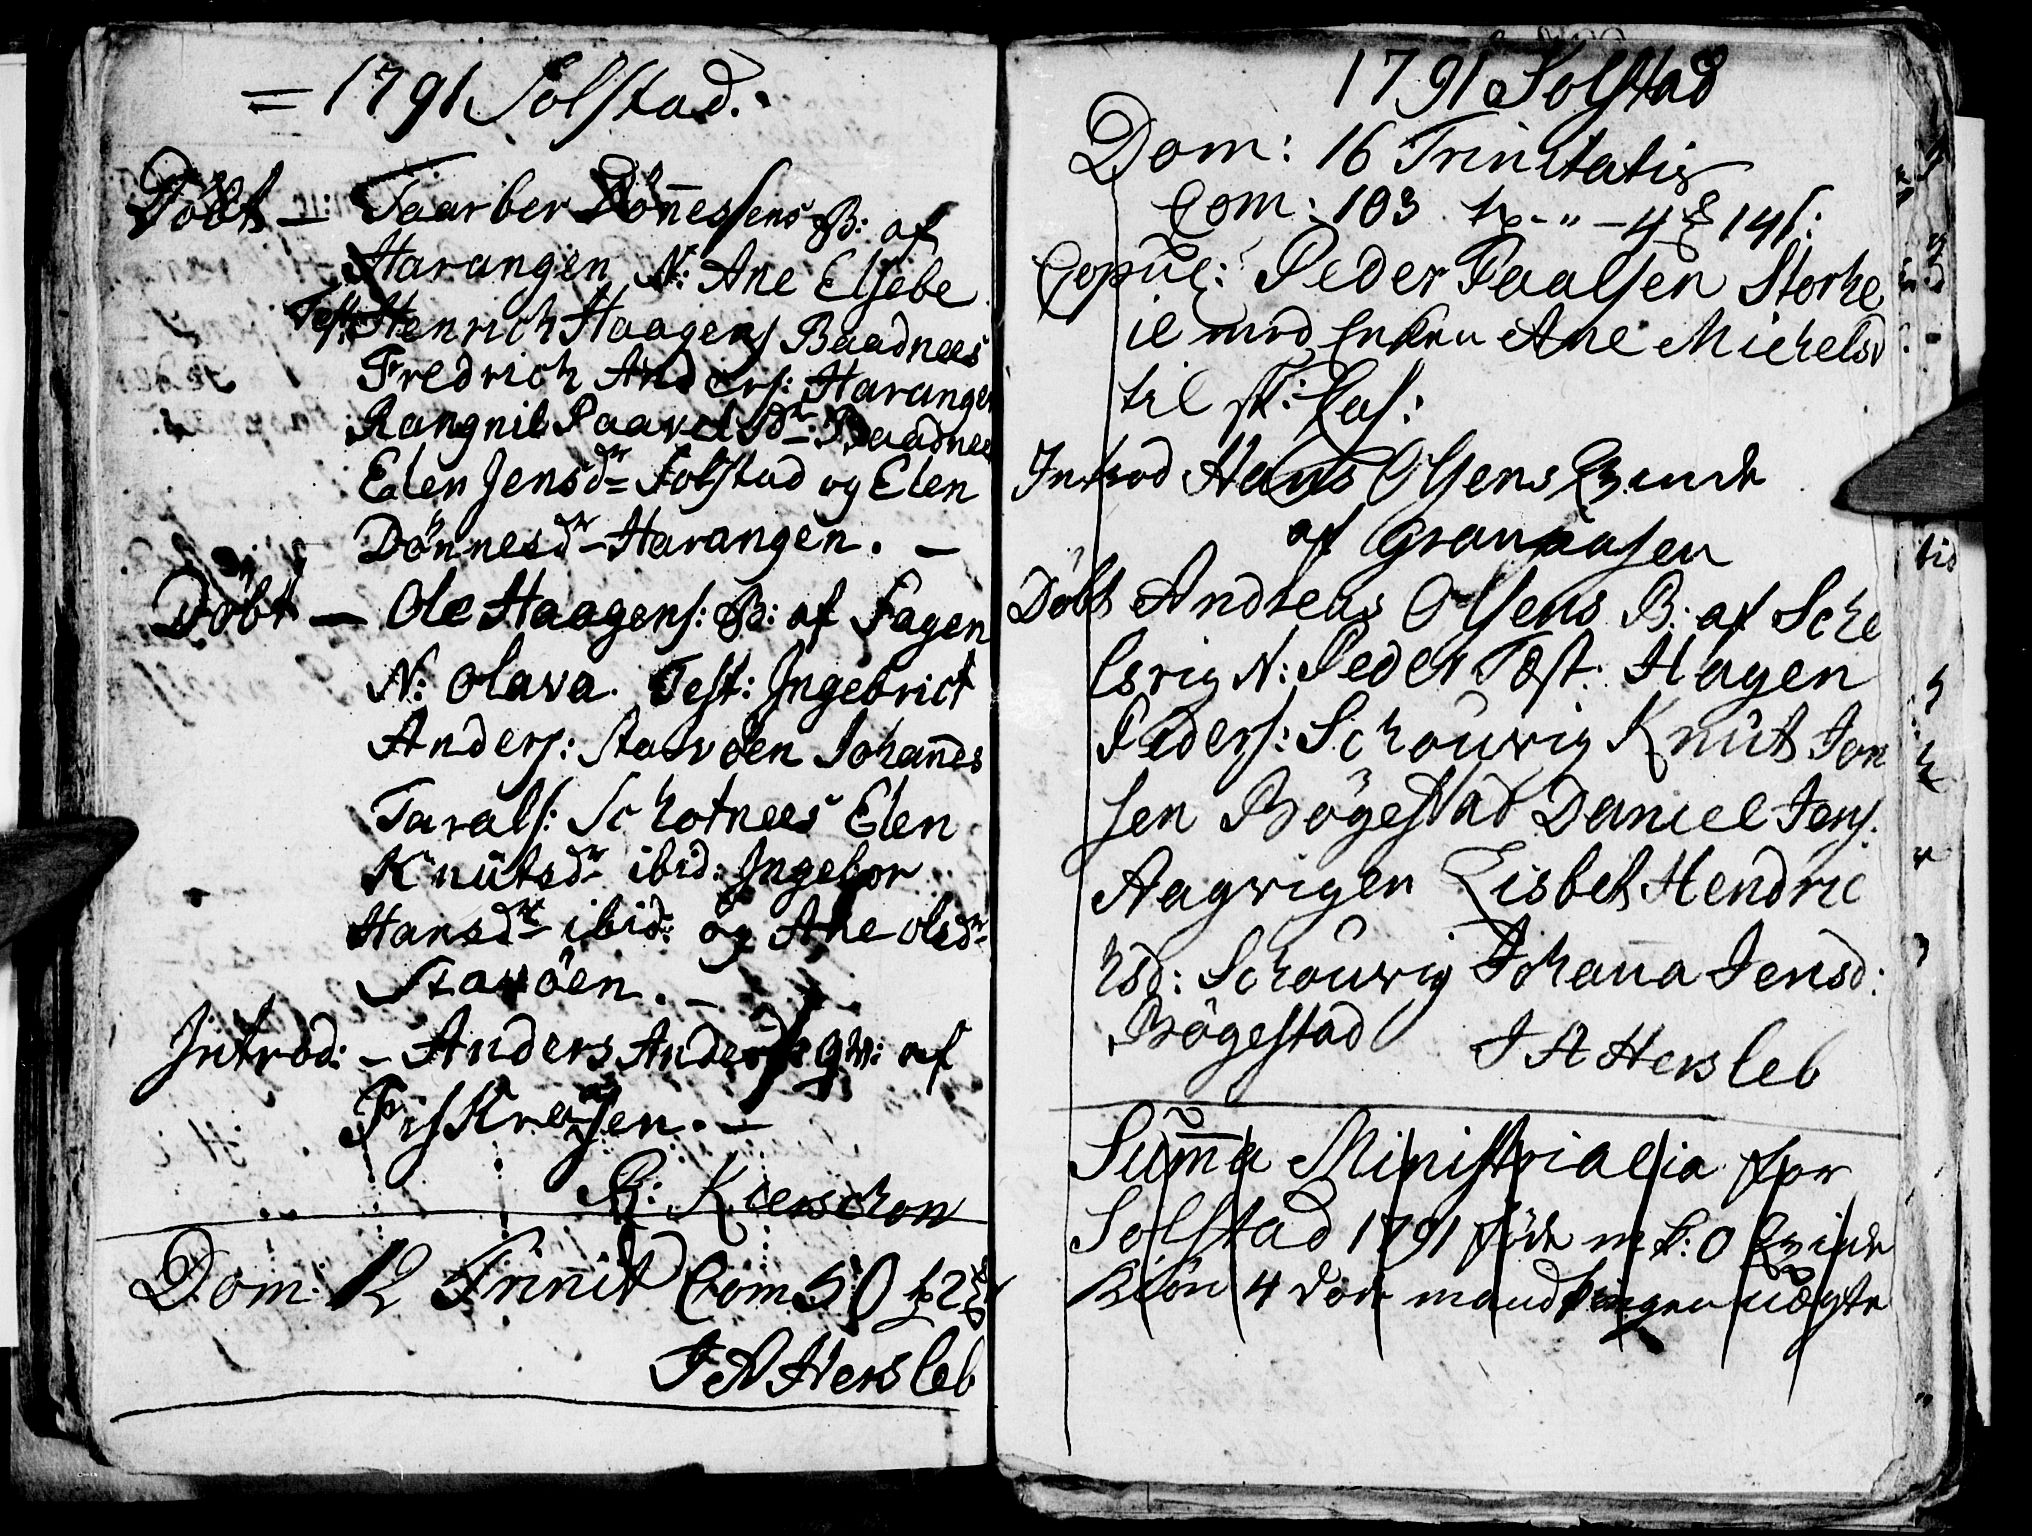 = 1791 Solstad.
Döbt — Taarber Dönnessens B: af
Harangen N: Ane Elsebe
Test: Henrich Haagens Baadnees
Fredrich Anders: Harangen
Rangnil Paavelsdr Baadnees
Elen Jensdr Solstad og Elen
Dönnesdr Harangen. —
Döbt — Ole Haagens: B: af Fagen
N: Olava. Test: Ingebrict
Anders: Stavöen Johannes
Tarals: Schotnees Elen
Knutsdr ibid: Ingebor
Hansdr ibid: og Ane Olsdr
Stavöen. —
Introd: — Anders Anders: qv: af
B: Kierschow
Dom: 12 Trinit Com 50
J A Hersleb
1791 Solstad
Dom: 16 Trinitatis
Com: 103
Copul: Peder Paalsen Storhe
il med Enken Ane Michelsd
til
Introd Hans Olsens Qvinde
af Graneaasen
Döbt Andreas Olsens B: af Sche
lsvig N: Peder Test: Hagen
Peders: Schouvig Knut Jon
sen Bögestad Daniel Jens.
Aagvigen Lisbeth Hendric
hsd: Schouvig Johanna Jensd:
Bögestad J A Hersleb
Summa Ministrialia for
Solstad 1791 föde m k: 0 Qvinde
Kiön 4 döde mandkiön